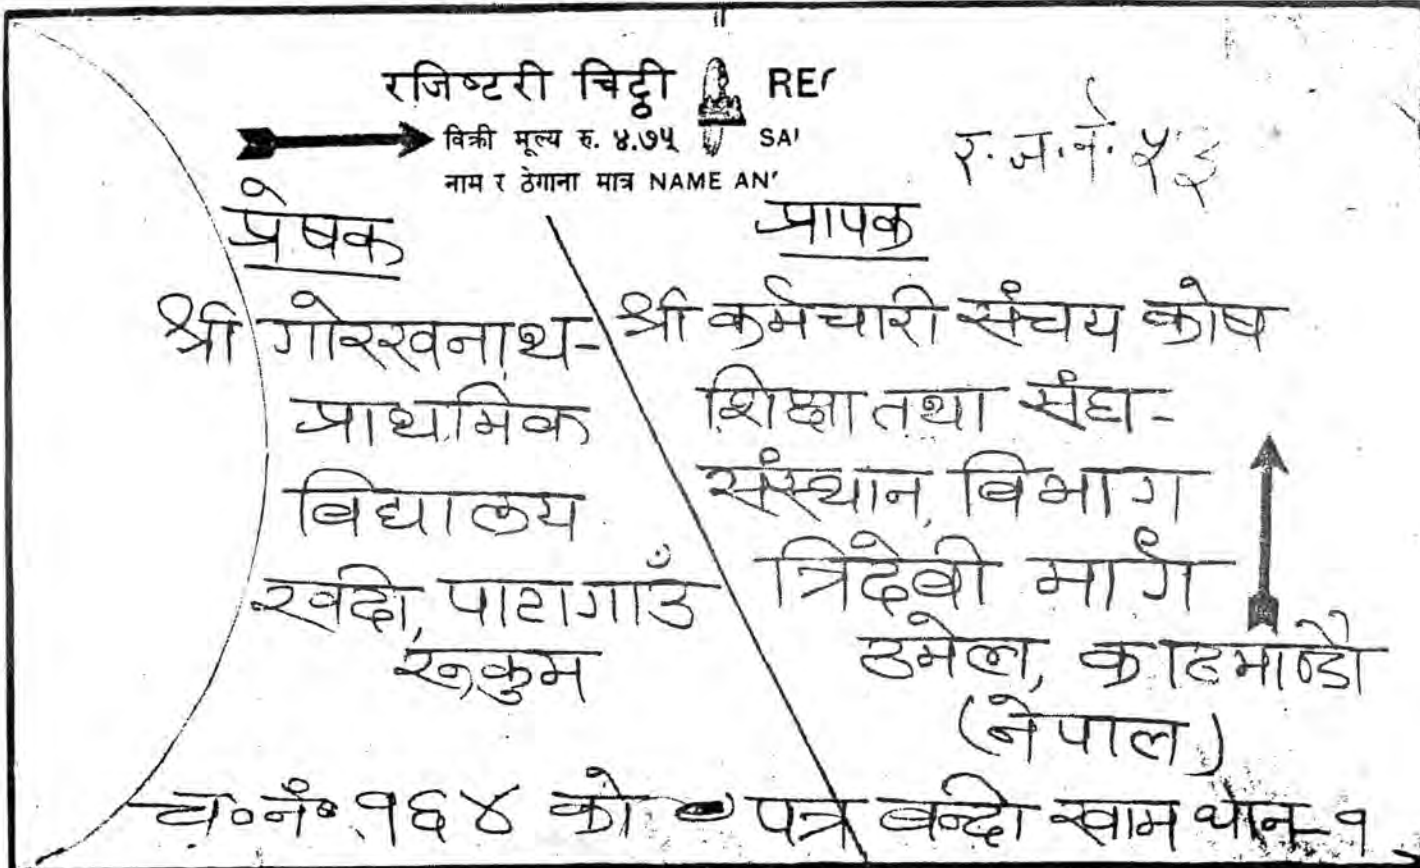 रजिष्टरी चिट्ठी RE
विक्री मूल्य रु. ४.७५ SA
नाम र ठेगाना मात्र NAME AN
र.ज.नं. ५३
प्रेषक
श्री गोरखनाथ-
प्राथमिक
विद्यालय
खदी, पाटागाउँ
रूकुम
प्रापक
श्री कर्मचारी संचय कोष
शिक्षा तथा संघ-
संस्थान विभाग
त्रिदेवी मार्ग
ठमेल, काठमाण्डौ
(नेपाल)
च.नं. १६४ को पत्र बन्दी खाम थान-१